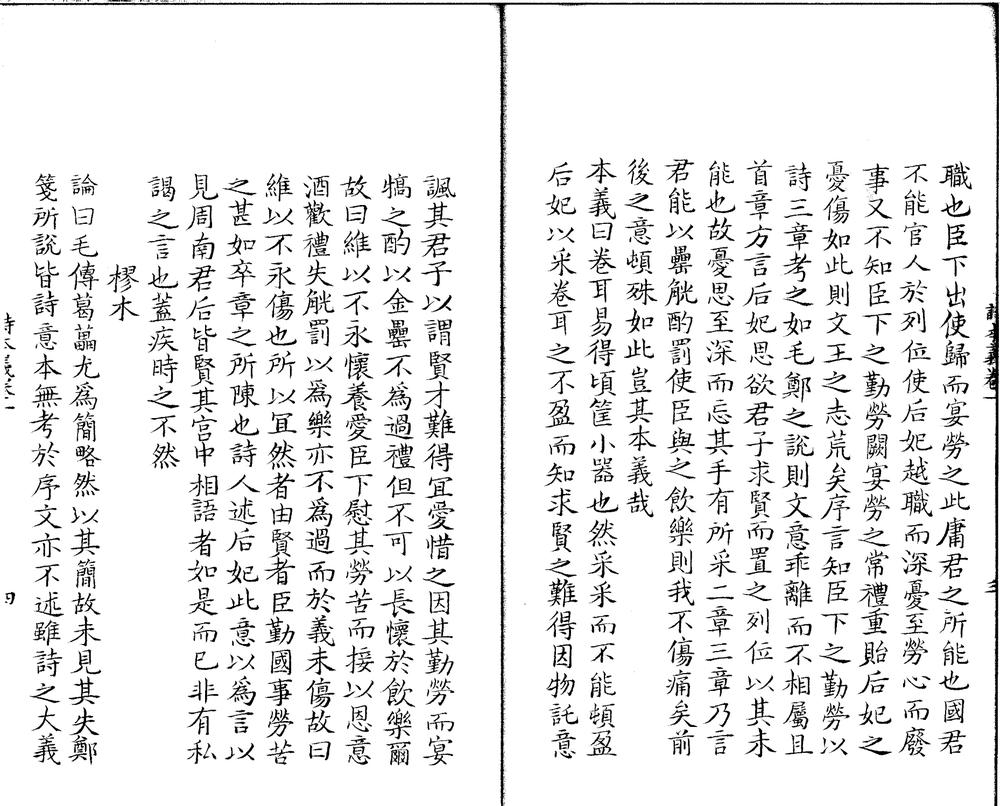 詩本義卷一
三
職也臣下出使歸而宴勞之此庸君之所能也國君
不能官人於列位使后妃越職而深憂至勞心而廢
事又不知臣下之勤勞闕宴勞之常禮重貽后妃之
憂傷如此則文王之志荒矣序言知臣下之勤勞以
詩三章考之如毛鄭之說則文意乖離而不相屬且
首章方言后妃思欲君子求賢而置之列位以其未
能也故憂思至深而忘其手有所采二章三章乃言
君能以罍觥酌罰使臣與之飲樂則我不傷痛矣前
後之意頓殊如此豈其本義哉
本義曰卷耳易得頃筐小器也然采采而不能頓盈
后妃以采卷耳之不盈而知求賢之難得因物託意
諷其君子以謂賢才難得宜愛惜之因其勤勞而宴
犒之酌以金罍不為過禮但不可以長懷於飲樂爾
故曰維以不永懷養愛臣下慰其勞苦而接以恩意
酒歡禮失觥罰以為樂亦不為過而於義未傷故曰
維以不永傷也所以冝然者由賢者臣勤國事勞苦
之甚如卒章之所陳也詩人述后妃此意以為言以
見周南君后皆賢其宮中相語者如是而已非有私
謁之言也蓋疾時之不然
樛木
論曰毛傳葛藟尤為簡略然以其簡故未見其失鄭
箋所說皆詩意本無考於序文亦不述雖詩之大義
詩本義卷一
四